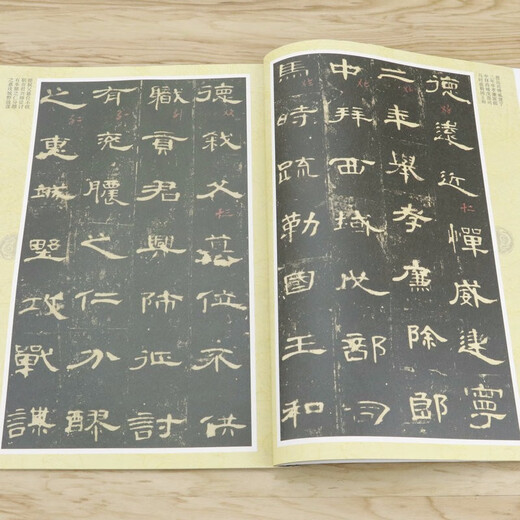 德遠近憚威建寧
二年舉孝廉除郎
中拜西域戊部司
馬時疏勒國王和
德弒父篡位不供
職貢君興師征討
有兗膿之仁分醪
之惠城墅攻戰謀